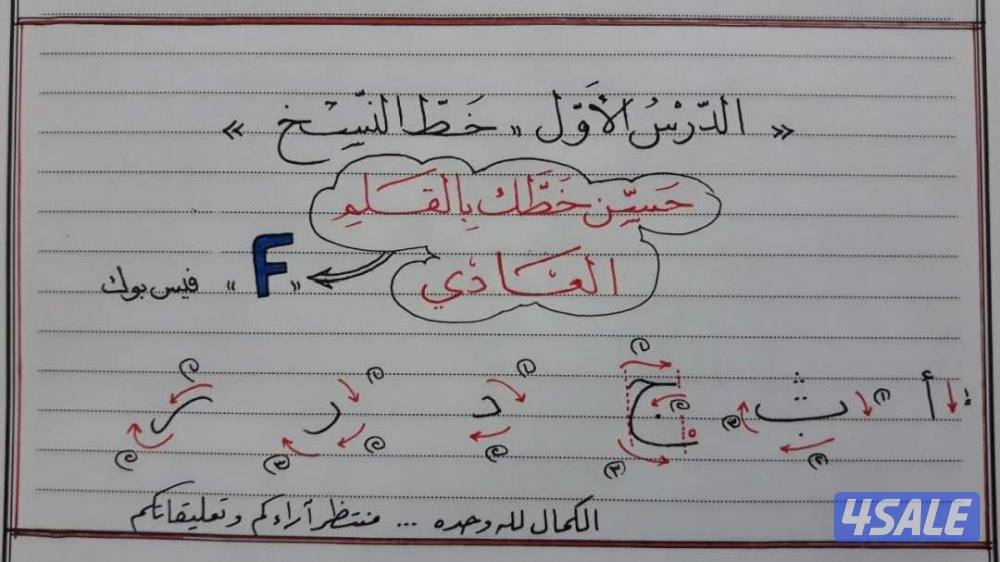 « الدّرْسُ الأَوّل ،، خَطّ النّسْخ »
حَسِّن خَطَّك بِالْقَلَمِ
العَادْي
"F" فيس بوك
أ ث ج د ر ر
الكمال لله وحده ... منتظر أراءكم وتعليقاتكم
4SALE